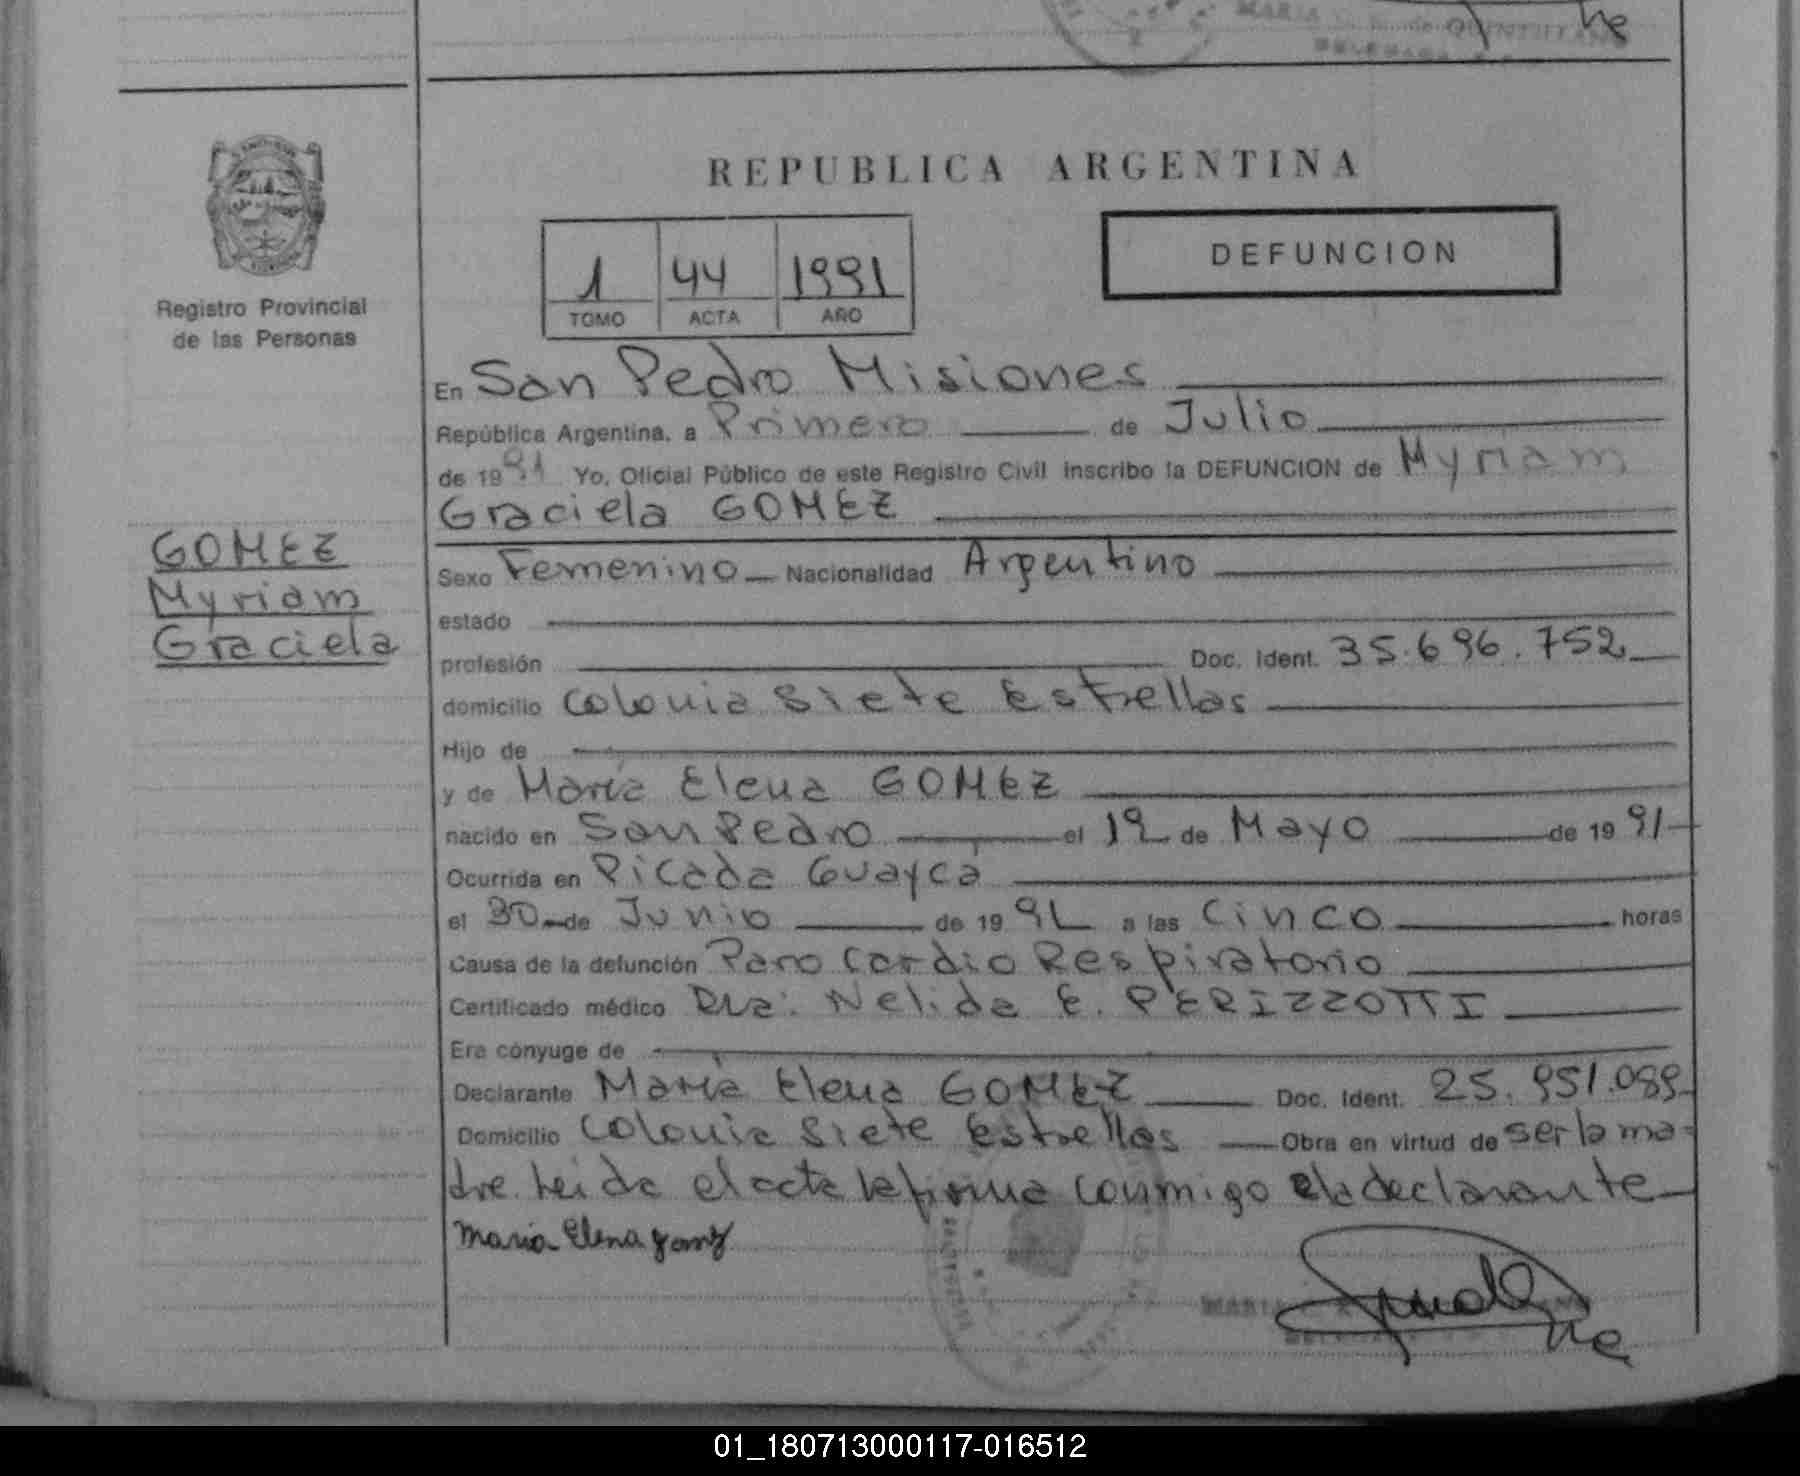 MARIA QUINTILIANO
DELEGADA
REPUBLICA ARGENTINA
DEFUNCION
1 44 1991
TOMO ACTA AÑO
Registro Provincial
de las Personas
En San Pedro Misiones
República Argentina, a Primero de Julio
de 1991 Yo, Oficial Público de este Registro Civil inscribo la DEFUNCION de Myriam
Graciela GOMEZ
GOMEZ
Myriam
Graciela
Sexo Femenino Nacionalidad Argentino
estado
profesión Doc. Ident. 35.696.752
domicilio Colonia Siete Estrellas
Hijo de
y de María Elena GOMEZ
nacido en San Pedro el 19 de Mayo de 1991
Ocurrida en Picada Guaycá
el 30 de Junio de 1991 a las Cinco horas
Causa de la defunción Paro Cardio Respiratorio
Certificado médico Dra: Nelida E. PERIZZOTTI
Era cónyuge de
Declarante María Elena GOMEZ Doc. Ident. 25.951.089
Domicilio Colonia Siete Estrellas Obra en virtud de ser la ma-
dre. Leida el acta la firma conmigo la declarante
Maria Elena gomz
MARIA
01_180713000117-016512